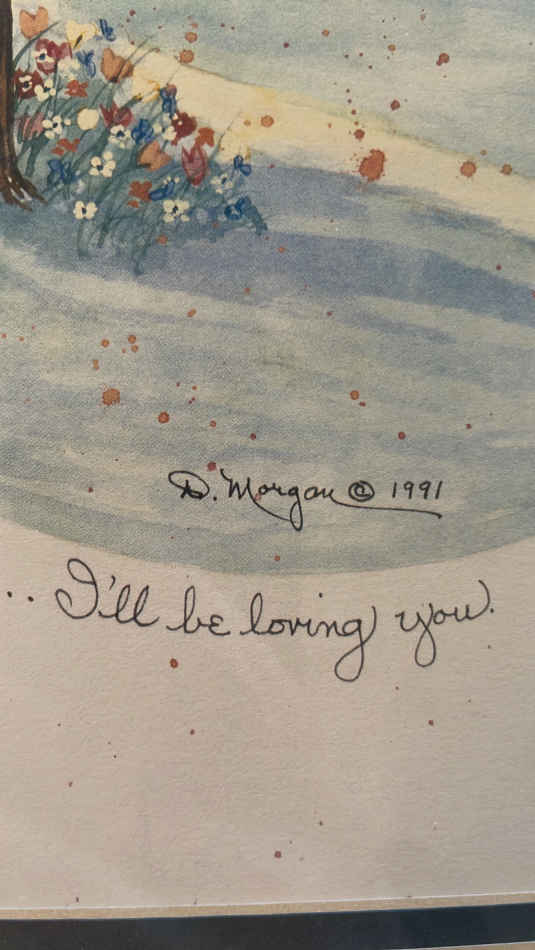 D. Morgan © 1991
.. I'll be loving you.